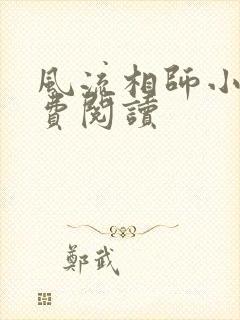 風流相師小
費閱讀
鄭武